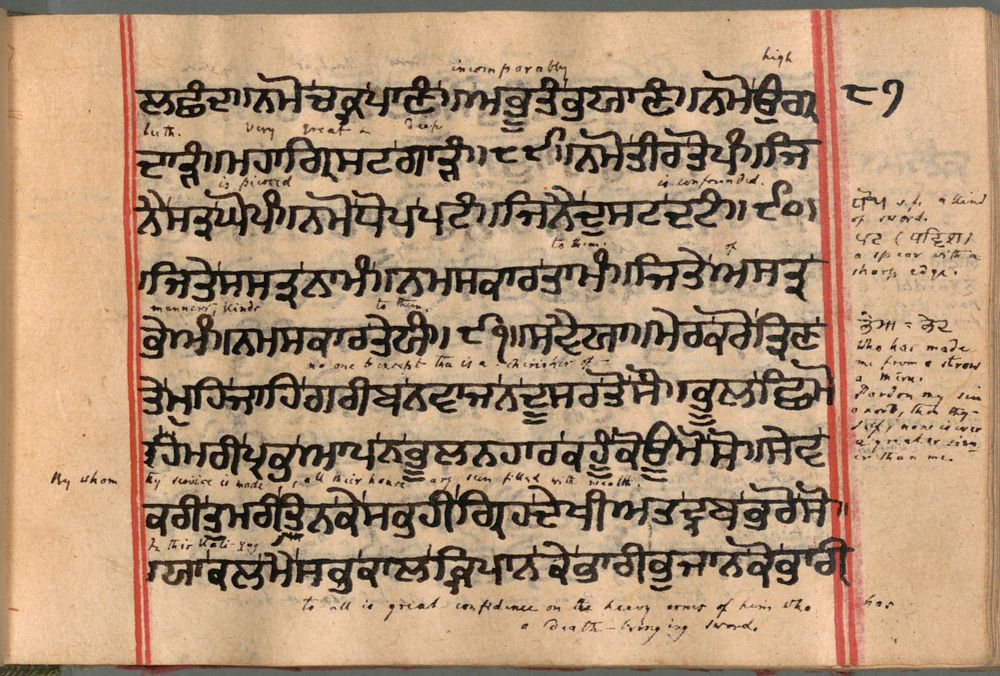 incomparably high
ਲਛੰਦ॥ਨਮੋਚਕ੍ਰਪਾਣੰ॥ਅਭੂਤੰਭਯਾਣੰ॥ਨਮੋਉਗ੍ਰ ੮੭
teeth. very great & deep
ਦਾੜੰ॥ਮਹਾਗ੍ਰਿਸਟਗਾੜੰ॥੮੯॥ਨਮੋਤੀਰਤੋਪੰ॥ਜਿ
is pierced is confounded.
ਨੈਸਤ੍ਰਘੋਪੰ॥ਨਮੋਧੋਪਪਟੰ॥ਜਿਨੈਦੁਸਟਦਟੰ॥੯੦॥
to them. of
ਜਿਤੇਸਸਤ੍ਰਨਾਮੰ॥ਨਮਸਕਾਰਤਾਮੰ॥ਜਿਤੇਅਸਤ੍ਰ
manners, kinds to them.
ਭੇਅੰ॥ਨਮਸਕਾਰਤੇਯੰ॥੯੧॥ਸਵੈਯਾ॥ਮੇਰਕਰੋਤ੍ਰਿਣ
no one except thee is a cherisher of
ਤੇਮੁਹਿਜਾਹਿਗਰੀਬਨਵਾਜਨਦੂਸਰਤੋਸੌ॥ਭੂਲਛਿਮੋ
ਹਿਮਰੀਪ੍ਰਭੁਆਪਨਭੂਲਨਹਾਰਕਹੂੰਕੋਊਮੋਸੋ॥ਸੇਵ
By whom thy service is made, all their houses are seen filled with wealth
ਕਰੀਤੁਮਰੀਤਿਨਕੇਸਭਹੀਗ੍ਰਿਹਦੇਖੀਅਤਦ੍ਰਬਭਰੋਸੋ॥
In this Kali-yug
ਯਾਕਲਮੈਸਭਕਾਲਕ੍ਰਿਪਾਨਕੇਭਾਰੀਭੁਜਾਨਕੋਭਾਰੀ
to all is great confidence on the heavy arms of him who has
a death-bringing sword.
ਧੋਪ s.f. a kind
of sword.
ਪਟ (ਪਟਿਸ਼)
a spear with a
sharp edge.
ਭੇਅ = ਭੇਦ
Who has made
me from a straw
a Meru.
Pardon my sin
o Lord, thou thy-
self, none is ever
a greater sinn-
er than me.